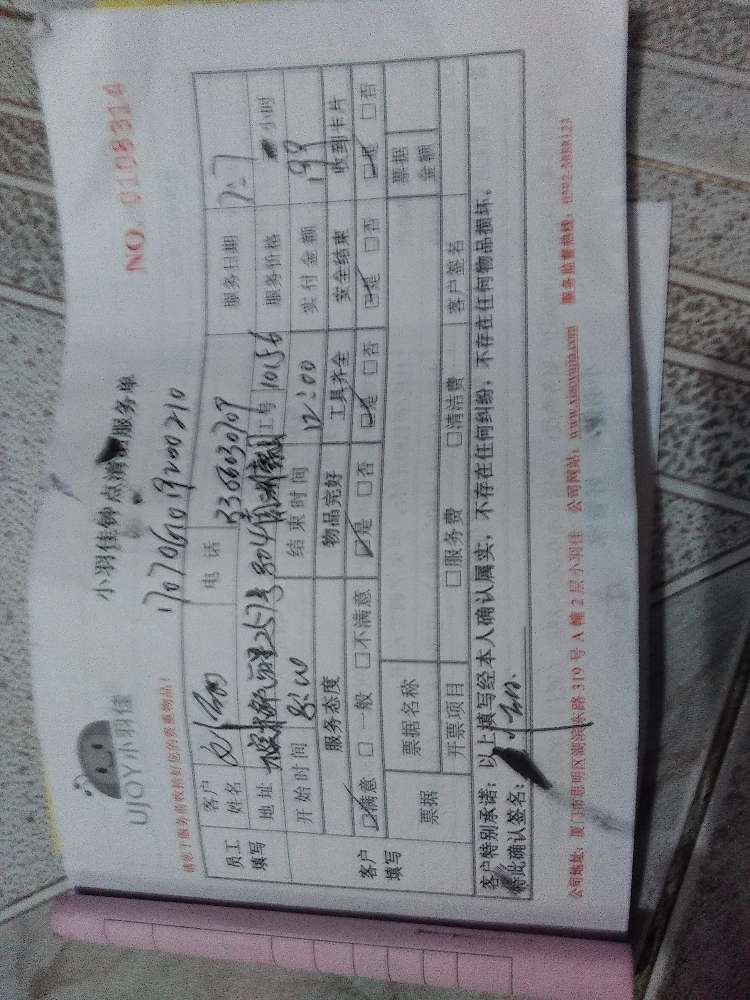 UJOY小羽佳
小羽佳钟点清洁服务单
NO. 0108314
请您于服务前收拾好您的贵重物品!
1707061019200210
员工填写
客户姓名
电话
服务日期 7.7
地址 257号804
工号 10156
服务价格 小时
开始时间 8:00
结束时间 12:00
实付金额 199
客户填写
服务态度 物品完好 工具齐全 安全结束 收到卡片
☑满意 □一般 □不满意 ☑是 □否 ☑是 □否 ☑是 □否 ☑是 □否
票据 票据名称 票据金额
开票项目 □服务费 □清洁费 客户签名
客户特别承诺:以上填写经本人确认属实,不存在任何纠纷,不存在任何物品损坏。
特此确认签名:
公司地址:厦门市思明区湖滨东路319号A幢2层小羽佳 公司网站:www.xiaoyujia.com 服务监督热线:0592-3888123